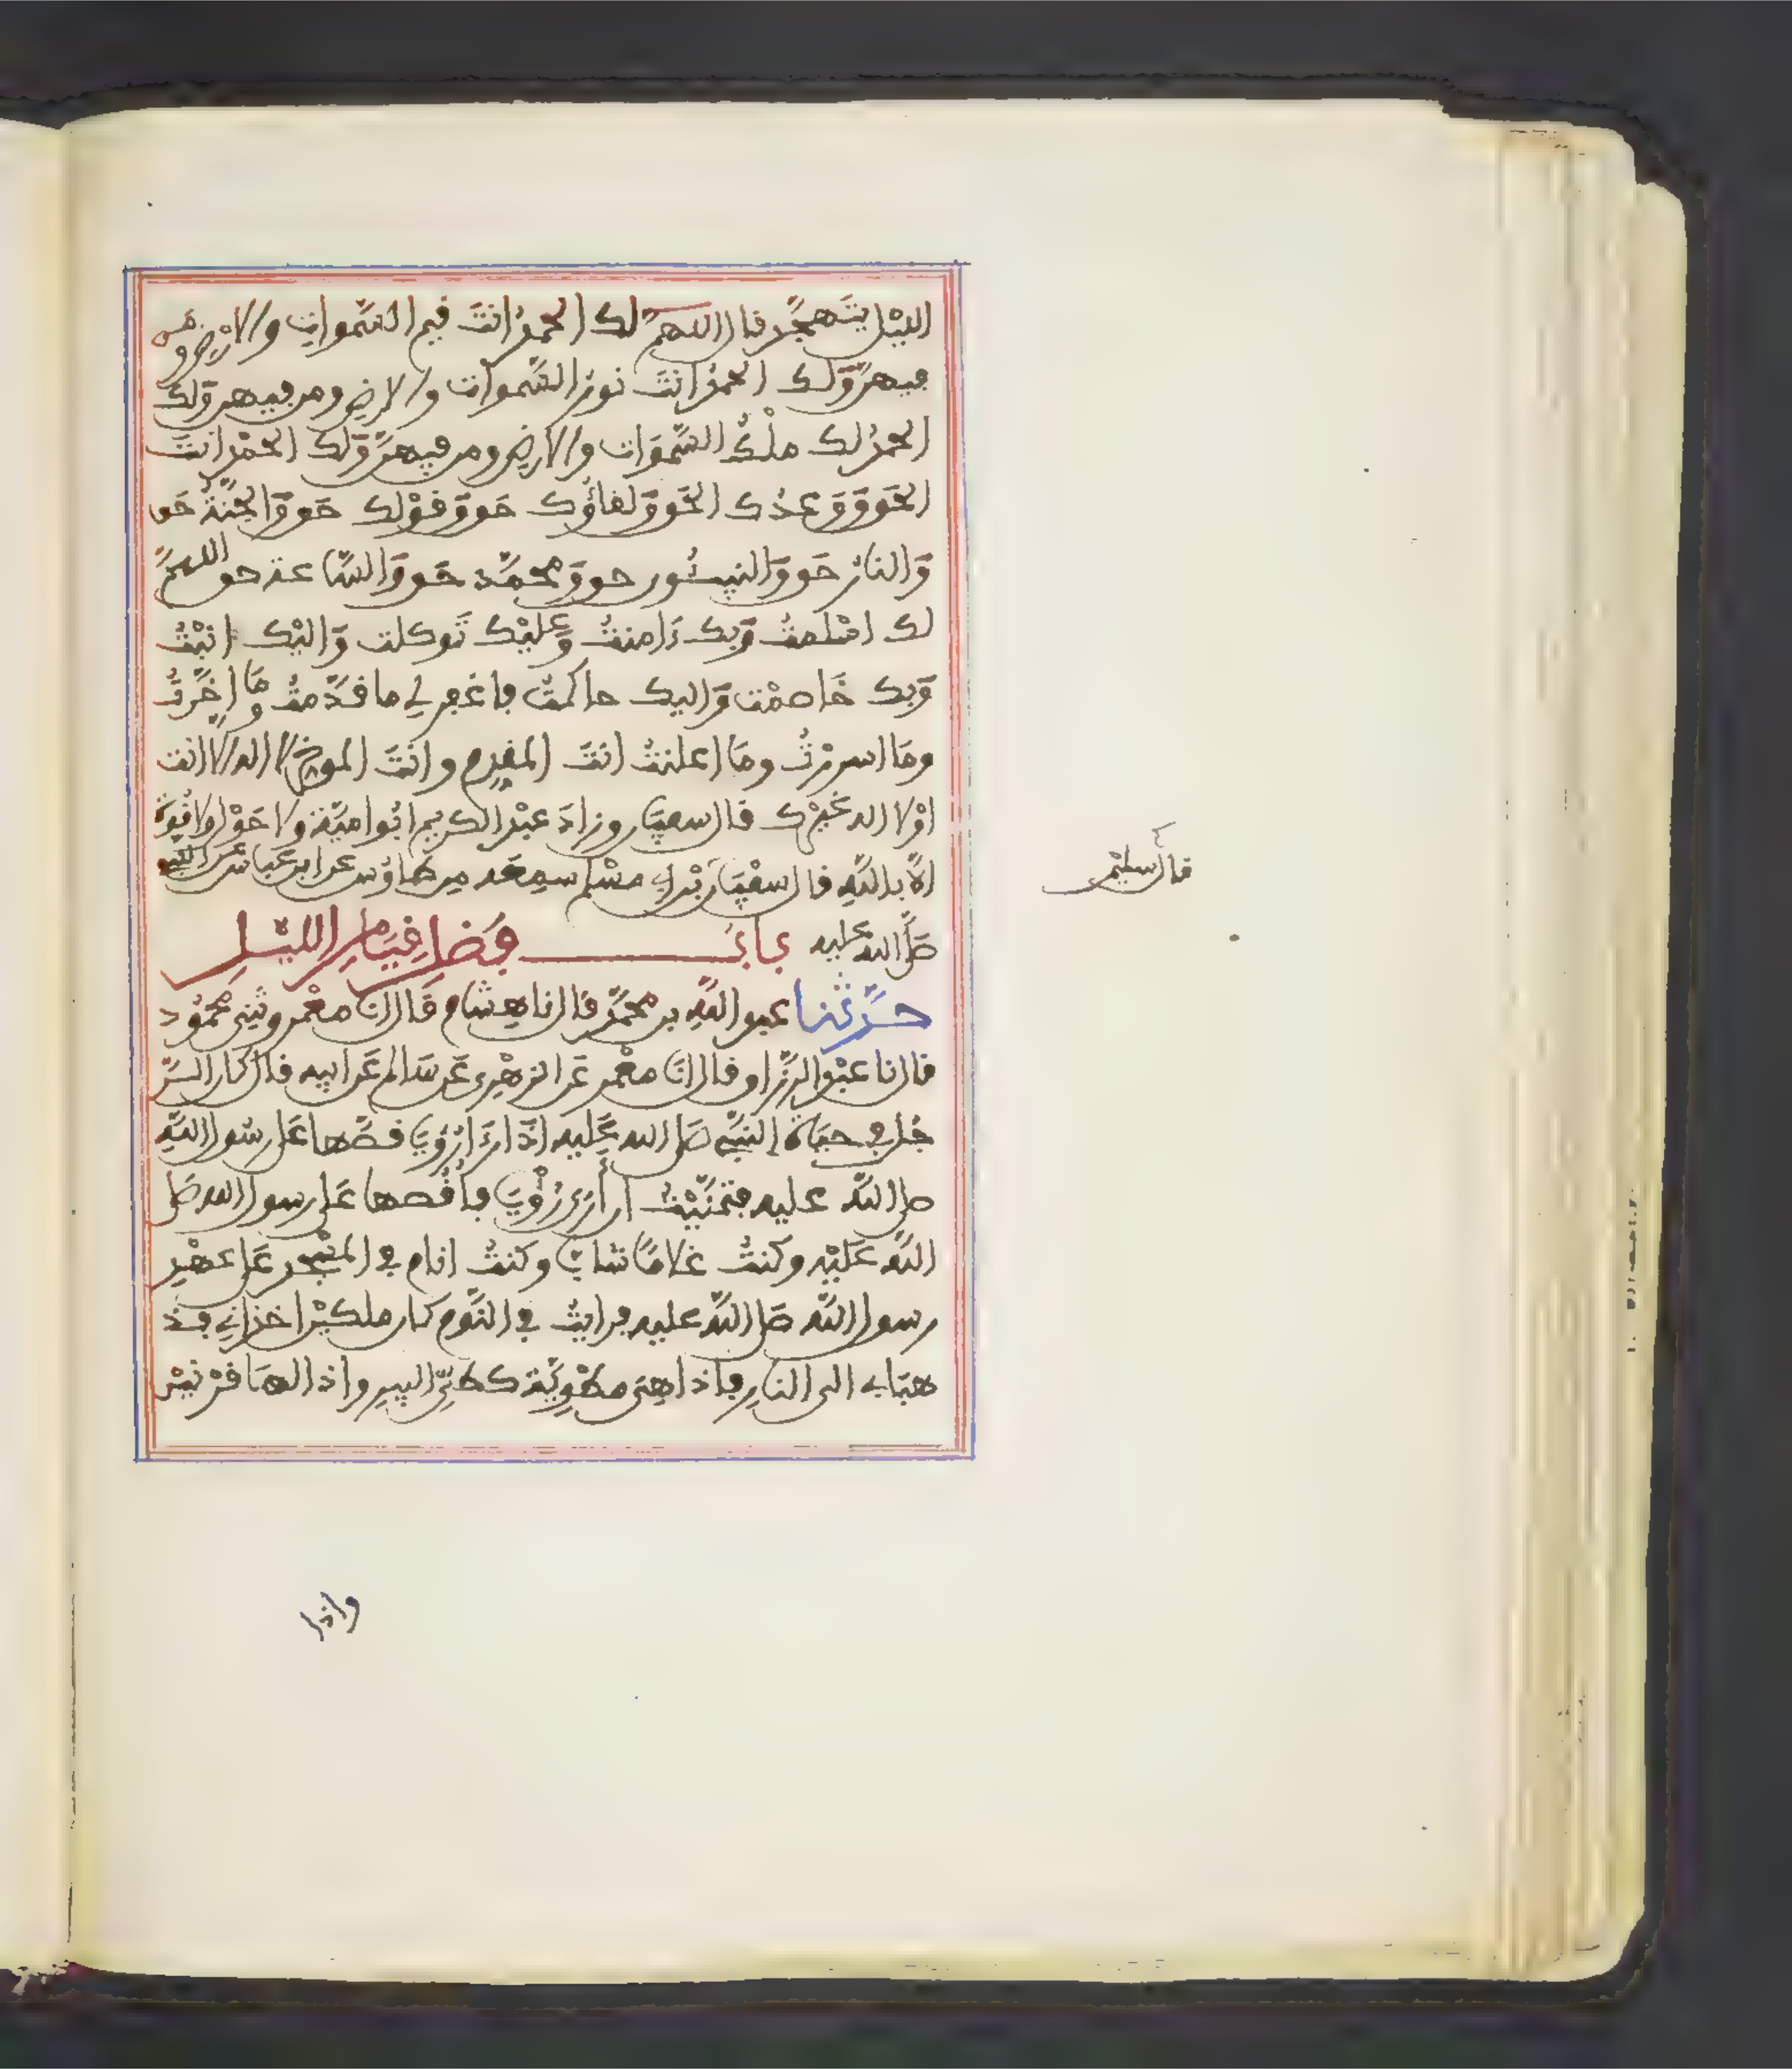 الليل يتهجد قال اللهم لك الحمد انت قيم السموات والارض ومن
فيهن ولك الحمد انت نور السموات والارض ومن فيهن ولك
الحمد لك ملك السموات والارض ومن فيهن ولك الحمد انت
الحق ووعدك الحق ولقاؤك حق وقولك حق والجنة حق
والنار حق والنبيئون حق ومحمد حق والساعة حق اللهم
لك اسلمت وبك ءامنت وعليك توكلت واليك انبت
وبك خاصمت واليك حاكمت فاغفر لي ما قدمت وما اخرت
وما اسررت وما اعلنت انت المقدم وانت الموخر لا اله الا انت
او لا اله غيرك قال سفين وزاد عبد الكريم ابو امية ولا حول ولا قوة
الا بالله قال سفين بن ابي مسلم سمعه من طاوس عن ابن عباس عن النبي
صلى الله عليه باب فضل قيام الليل
حدثنا عبد الله بن محمد قال نا هشام قال انا معمر وثني محمود
قال نا عبد الرزاق قال انا معمر عن الزهري عن سالم عن ابيه قال كان الر
جل في حياة النبي صلى الله عليه اذا رءا رؤيا قصها على رسول الله
صلى الله عليه فتمنيت ان أرى رؤيا فأقصها على رسول الله صلى
الله عليه وكنت غلاما شابا وكنت انام في المسجد على عهد
رسول الله صلى الله عليه فرايت في النوم كان ملكين اخذاني فذ
هبا بي الى النار فاذا هي مطوية كطي البير واذا لها قرنين
قال سليمن
واذا